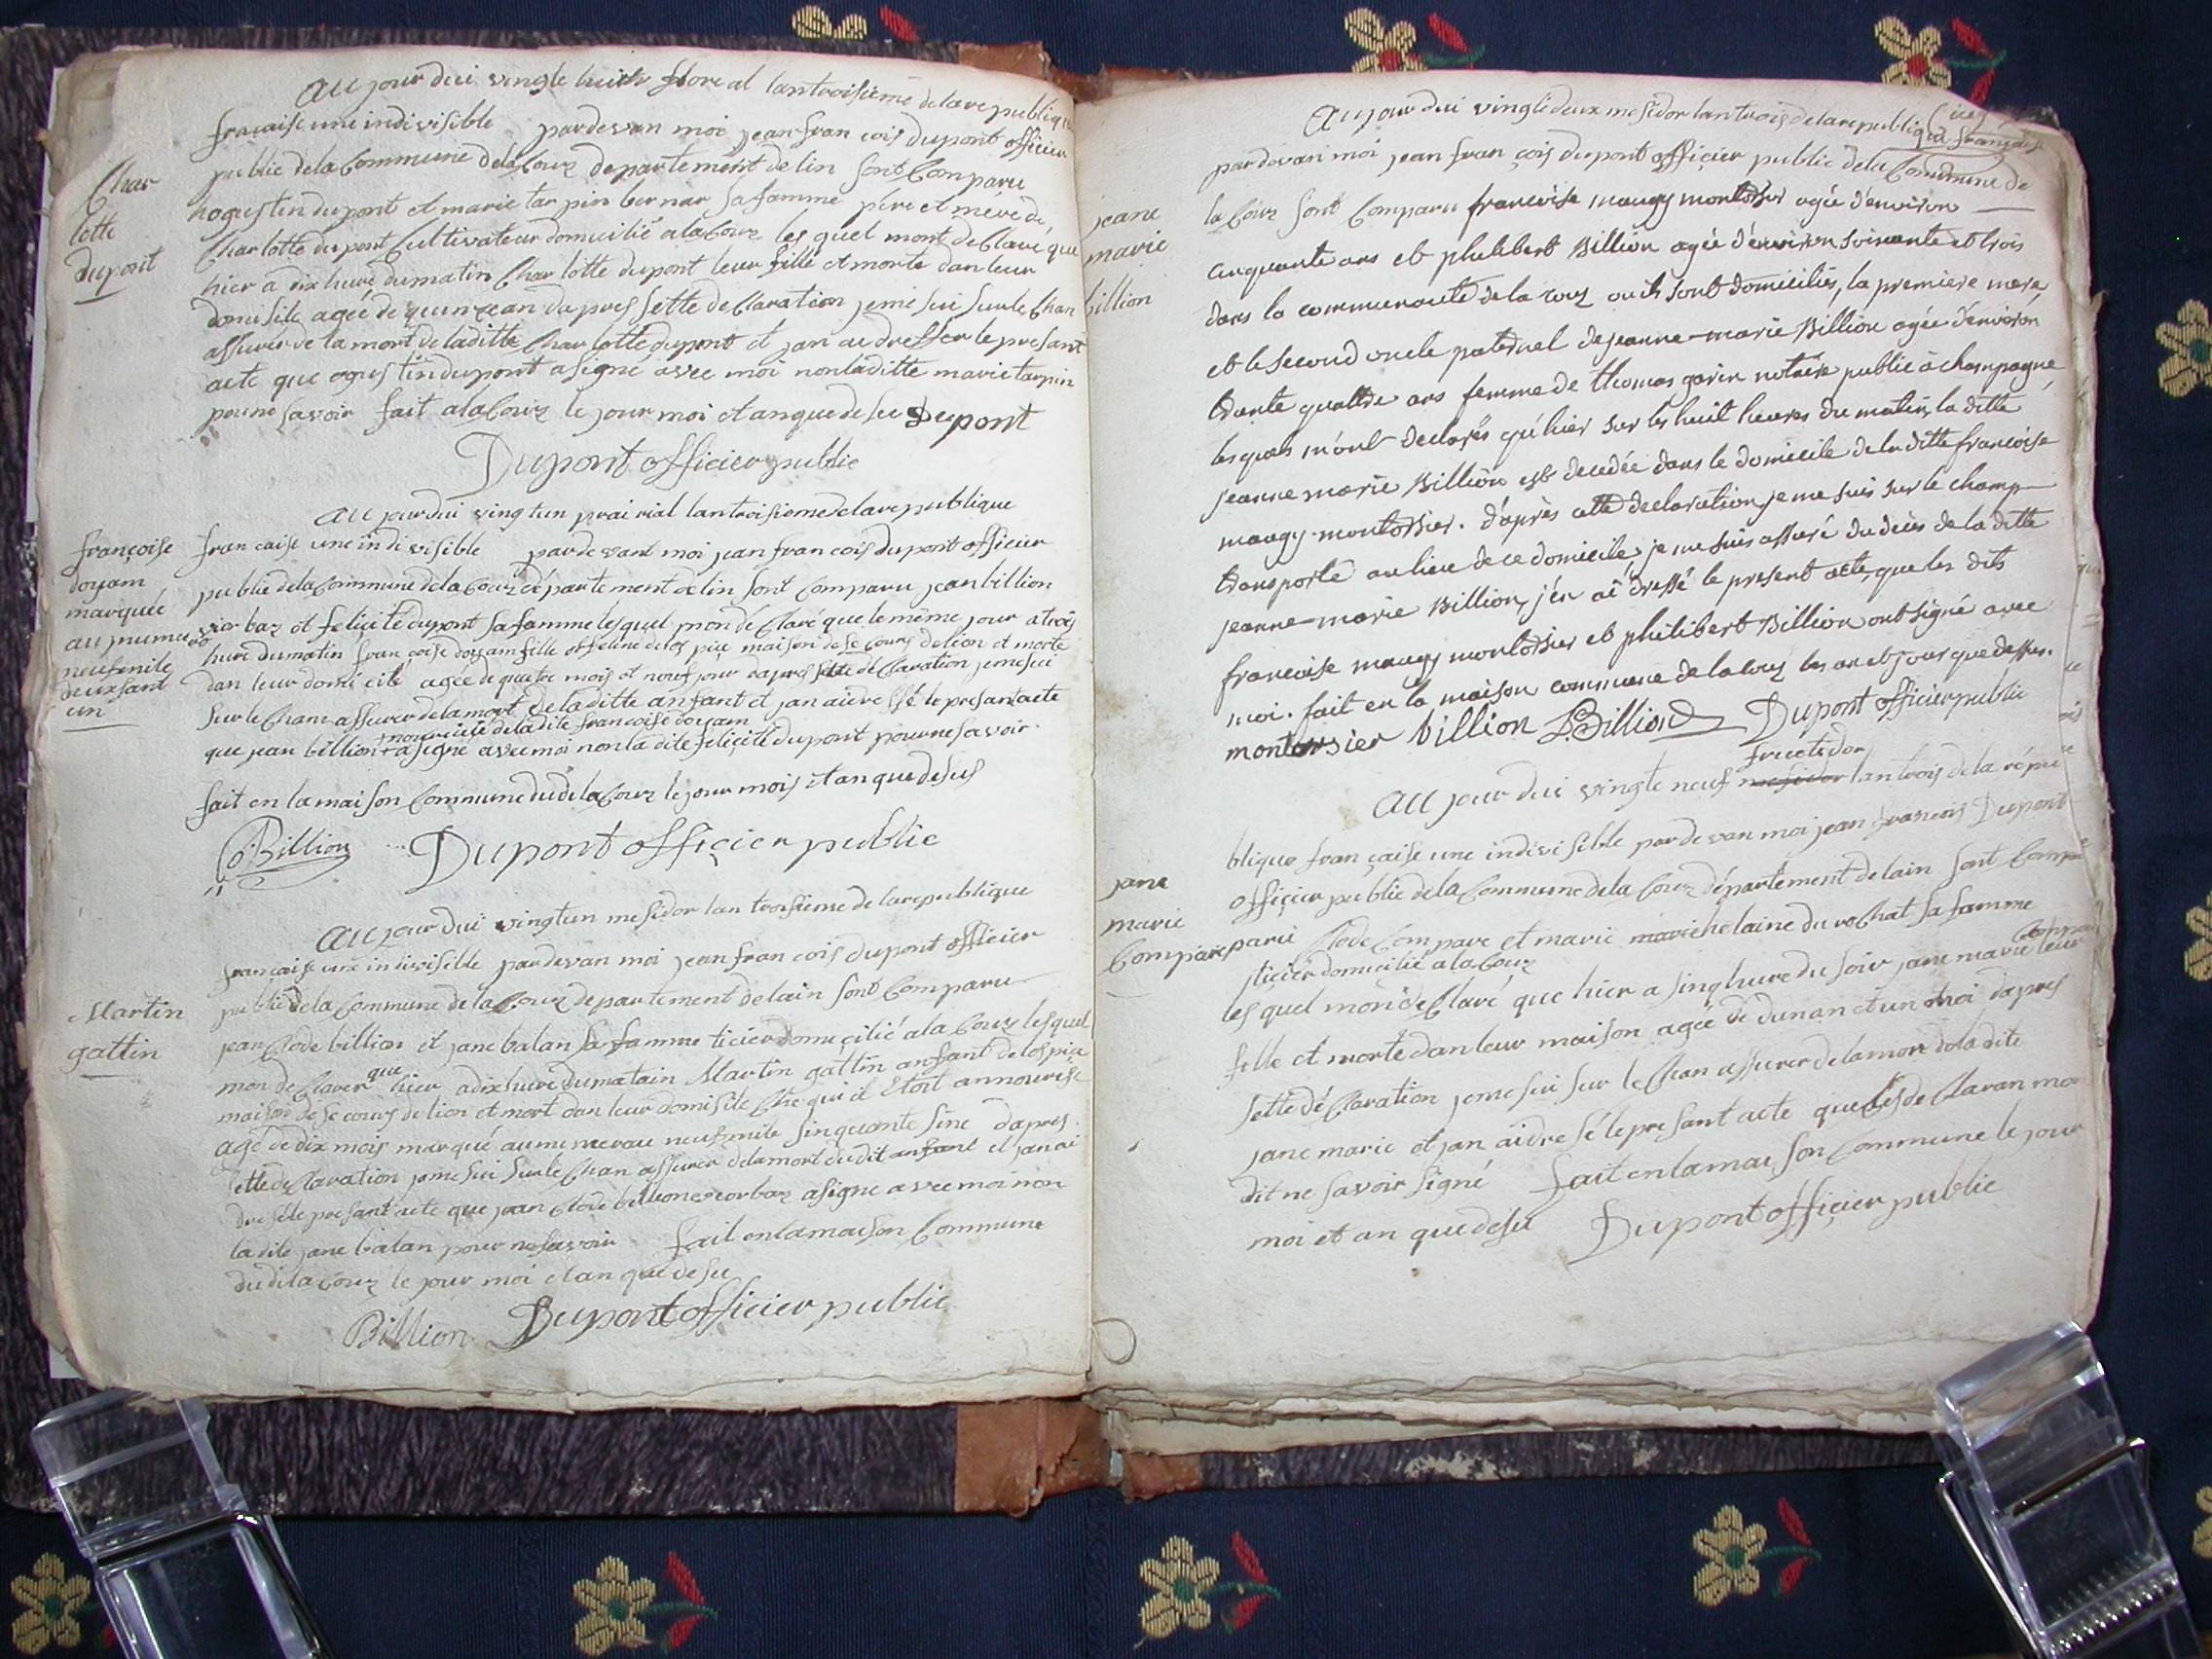 au jour dui vingle huith floreal lantroisieme delarepublique
fracaise une indivisible pardevan moi jean fran cois dupont officier
public dela Commune delaCouz departement de lin sont Comparu
hogustin dupont et marie tar pin bernar sa famme pere et mére de
Charlotte dupont Cultivateur domicilié alaCouz les quel mont deClaré que
hier a dix heure dumatin Char lotte dupont leur fille et morte dan leur
domisile agée de quinzean dapres sette deClaration jeme sui surle Chan
assurer de la mort deladitte Char lotte dupont et jan ai dresser le presant
acte que ogustin dupont a signé avec moi nonladitte marie tarpin
pour ne savoir fait alaCouz le jour moi et anque desu Dupont
Dupont officier public
Char
lotte
dupont
au jourdui vingtun prairial lantroisieme delarepublique
fran caise une indivisible pardevant moi jean fran cois dupont officier
public delaCommune delaCouz département delin sont Comparu jean billion
corbaz et felicité dupont sa famme lésquel mon dé Claré que le même jour a trois
heure dumatin fran coise doyam fille orfeline delos pice maison de se cours delion et morte
dan leur domi cile agée de quatre mois et neuf jour dapres sette dé Claration jeme sui
sur le Cham assurer delamort de laditte anfant et jan ai dressé le presant acte
nouricise deladite francoise doyam
que jean billion + a signé avec moi non la dite felicité dupont pour ne savoir
fait en lamaison Commune dudelaCouz lejour mois et an que desus
Billion Dupont officier public
françoise
doyam
marquée
au numero
neufmile
deux sant
un
au jourdui vingtun mesidor lan troisieme de larepublique
française une indivisible pardevan moi jean fran cois dupont officier
public dela Commune de la Couz departement delain sont Comparu
jean Clode billion et jane balan sa famme ticier domicilié ala Couz lesquel
mon de Clarer que hier adix heure dumatain Martin gattin anfant delospice
maison de se cours de lion et mort dan leur domisile Che qui il etoit annourise
agé de dix mois marqué aunumerau neufmile sinquante sinc dapres
sette de Claration jeme sui surle Chan assurer delamort dudit anfant et jan ai
dresé le presant acte que jean Clode billion corbaz a signé avec moi non
ladite jane balan pour ne savoir fait en lamaison Commune
dudit laCouz le jour moi et an que de su
Billion Dupont officier public
Martin
gattin
Aujourdui vingtdeux mesidor lantrois delarepublique française
pardevan moi jean fran çois dupont officier public dela Commune de
la Couz sont Comparu francoise maugy montessier agée d'environ
cinquante ans et philibert Billion agée d'environ soixante et trois
dans la communauté de la couz ou ils sont domiciliés, la premiere mere,
et le second oncle paternel de jeanne-marie Billion agée d'environ
trante quattre ans femme de thomas gavin notaire public à champagne
lesquels m'ont declarés qu'hier sur les huit heures du matin, la ditte
jeanne marie Billion est decedée dans le domicile de la ditte francoise
maugy-montessier. d'après cette declaration, je me suis sur le champ
transporté au lieu de ce domicile, je me suis assuré du décès de la ditte
jeanne-marie Billion, j'en ai dressé le present acte, que les dits
francoise maugy montessier et philibert Billion ont signé avec
moi. fait en la maison commune de la couz les an et jour que dessus.
montessier billion P. Billion Dupont officier public
jeane
marie
billion
fructidor
au jour dui vingte neuf mesidor lan trois de la répu
blique fran çaise une indivisible pardevan moi jean francois Dupont
officier public dela Commune dela Couz département delain sont Compa
paru Clode Compare et marie marie helaine du rochat sa famme
ticier domicilié a la Couz
les quel mon dé Claré que hier a sinq heure du soir jane marie leur
fille et morte dan leur maison agée de dunan et un moi dapres
sette dé Claration jeme sui sur le Chan assurer delamort dela dite
jane marie et jan ai dre sé le presant acte que les de Claran mon
dit ne savoir signé fait en lamai son Commune le jour
moi et an que desu Dupont officier public
jane
marie
Compare